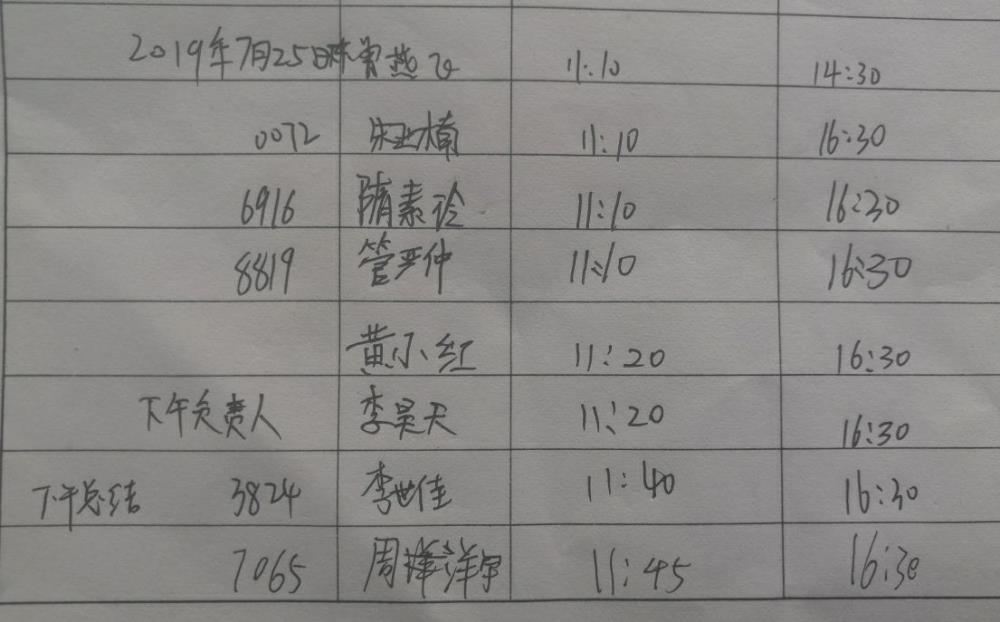 2019年7月25日 曾燕飞 11:10 14:30
0072 宋亚楠 11:10 16:30
6916 隋素玲 11:10 16:30
8819 管严仲 11:10 16:30
黄小红 11:20 16:30
下午负责人 李昊天 11:20 16:30
下午总结 3824 李世佳 11:40 16:30
7065 周泽洋宇 11:45 16:30